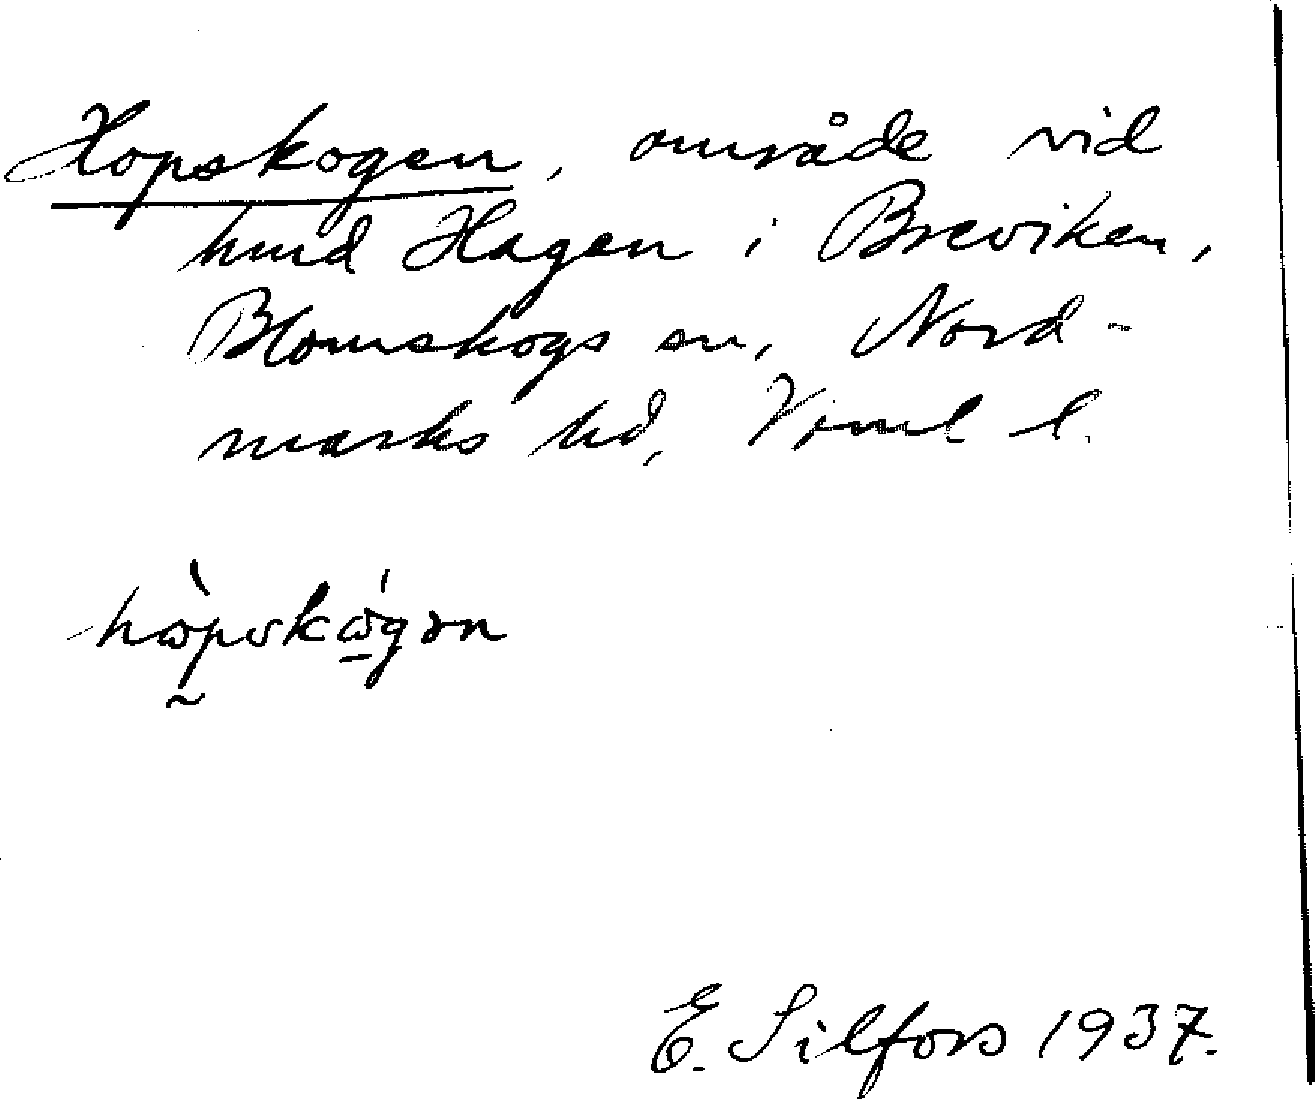 Hopskogen, område vid
hmd Hagen i Breviken,
Blomskogs sn, Nord-
marks hd, Vrml l.
E. Silfors 1937.